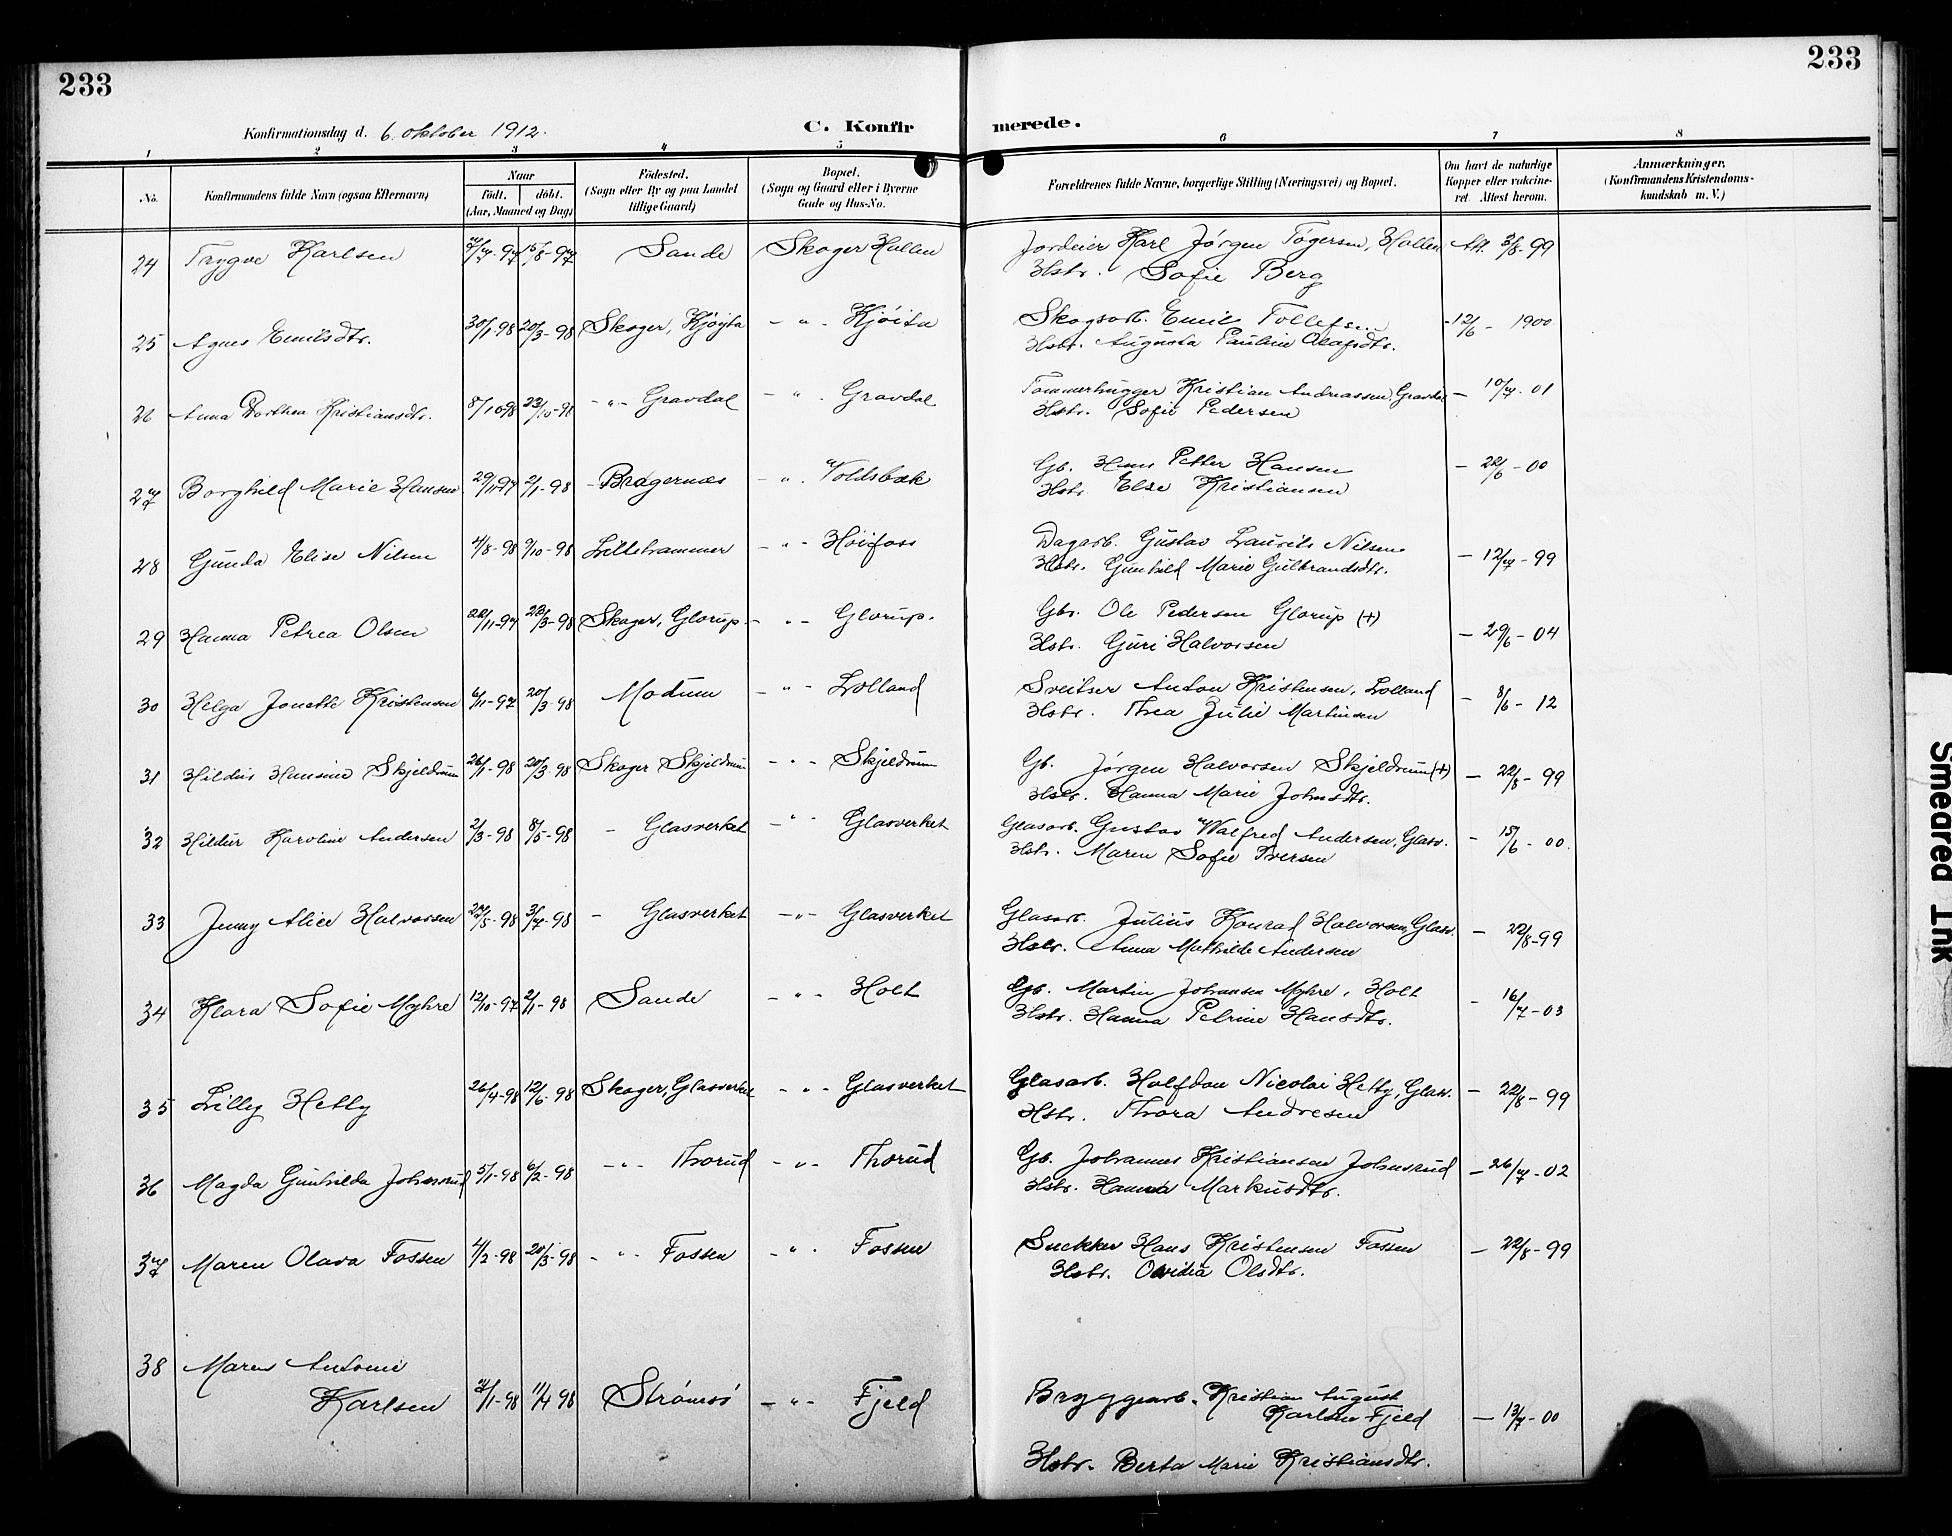 233
233
Konfirmationsdag d. 6. oktober 1912.
C. Konfirmerede.
1 2 3 4 5 6 7 8
No.
Konfirmandens fulde Navn (ogsaa Efternavn)
Naar
födt. döbt.
(Aar, Maaned og Dag)
Födested.
(Sogn eller By og paa Landet
tillige Gaard)
Bopæl.
(Sogn og Gaard eller i Byerne
Gade og Hus-No.
Forældrenes fulde Navne, borgerlige Stilling (Næringsvei) og Bopæl.
Om havt de naturlige
Kopper eller vakcine-
ret. Attest herom.
Anmærkninger.
(Konfirmandens Kristendoms-
kundskab m. V.)
24 Trygve Karlsen 7/7-97 15/8-97 Sande Skoger Hallen Jordeier Karl Jørgen Tøgersen, Hallen Att. 3/8-99
Hstr. Sofie Berg
25 Agnes Emilsdtr. 30/1-98 20/3-98 Skoger, Kjøyta - " - Kjøita Skogsarb. Emil Tollefsen - 12/6 - 1900
Hstr. Augusta Pauline Olafsdtr.
26 Anna Dorthea Kristiansdtr. 8/10-98 23/10-98 - " - Gravdal - " - Gravdal Tømmerhugger Kristian Andreassen, Gravdal - 10/7-01
Hstr. Sofie Pedersen
27 Borghild Marie Hansen 29/11-97 2/1-98 - Bragernæs - " - Voldsbæk Gb. Hans Petter Hansen - 22/6-00
Hstr. Else Kristiansen
28 Gunda Elise Nilsen 4/8-98 9/10-98 Lillehammer - " - Høifoss Dagarb. Gustav Laurits Nilsen - 12/7-99
Hstr. Gunhild Marie Gulbrandsdtr.
29 Hanna Petrea Olsen 22/11-97 23/3-98 Skoger, Glorup - " - Glorup. Gbr. Ole Pedersen Glorup (+) - 29/6-04
Hstr. Guri Halvorsen
30 Helga Jonette Kristensen 6/11-97 20/3-98 Modum - " - Lolland Sveitser Anton Kristensen, Lolland - 8/6-12
Hstr. Thea Julie Martinsen
31 Hildus Hansine Skjeldrum 26/1-98 20/3-98 Skoger Skjeldrum - " - Skjeldrum Gb. Jørgen Halvorsen Skjeldrum (+) - 22/8-99
Hstr. Hanna Marie Johnsdtr.
32 Hildur Karoline Andersen 2/3-98 8/5-98 - Glasverket - " - Glasverket Glasarb. Gustav Walfred Andersen, Glasv. - 15/6-00.
Hstr. Maren Sofie Iversen
33 Jenny Alice Halvorsen 27/5-98 3/7-98 - Glasverket - " - Glasverket Glasarb. Julius Konrad Halvorsen, Glasv. - 22/8-99
Hstr. Anna Mathilde Andersen
34 Klara Sofie Myhre 12/10-97 2/1-98 Sande - " - Holt Gb. Martin Johansen Myhre, Holt - 16/7-03
Hstr. Hanna Petrine Hansdtr.
35 Lilly Hetty 26/4-98 12/6-98 Skoger, Glasverket - " - Glasverket Glasarb. Halfdan Nicolai Hetty, Glasv. - 22/8-99
Hstr. Thora Andresen
36 Magda Gunhilda Johnsrud 5/1-98 6/2-98 - " - Thorud - " - Thorud Gb. Johannes Kristiansen Johnsrud - 26/7-02
Hstr. Hanna Markusdtr.
37 Maren Olava Fossen 4/2-98 20/3-98 - " - Fossen - " - Fossen Snekker Hans Kristensen Fossen - 22/8-99
Hstr. Ovidia Olsdtr.
38 Maren Antonie
Karlsen 7/1-98 11/4 98 Strømsø - " - Fjeld Bryggearb. Kristian August
Karlsen Fjeld - 13/7-00
Hstr. Berta Marie Kristiansdtr.
Smeared Ink